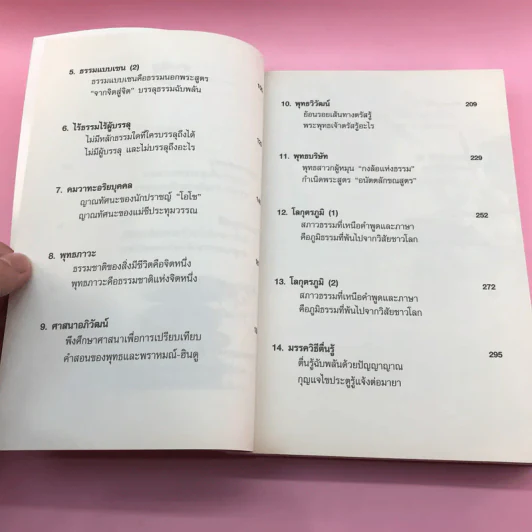 5. ธรรมแบบเซน (2)
ธรรมแบบเซนคือธรรมนอกพระสูตร
“จากจิตสู่จิต” บรรลุธรรมฉับพลัน
6. ไร้ธรรมไร้ผู้บรรลุ
ไม่มีหลักธรรมใดที่ใครบรรลุถึงได้
ไม่มีผู้บรรลุ และไม่บรรลุถึงอะไร
7. คมวาทะอริยบุคคล
ญาณทัศนะของนักปราชญ์ “โอโช”
ญาณทัศนะของแม่ชีประทุมวรรณ
8. พุทธภาวะ
ธรรมชาติของสิ่งมีชีวิตคือจิตหนึ่ง
พุทธภาวะคือธรรมชาติแห่งจิตหนึ่ง
9. ศาสนาอภิวัฒน์
พึงศึกษาศาสนาเพื่อการเปรียบเทียบ
คำสอนของพุทธและพราหมณ์-ฮินดู
10. พุทธวิวัฒน์ 209
ย้อนรอยเส้นทางตรัสรู้
พระพุทธเจ้าตรัสรู้อะไร
11. พุทธบริษัท 229
พุทธสาวกผู้หมุน “กงล้อแห่งธรรม”
กำเนิดพระสูตร “อนัตตลักขณสูตร”
12. โลกุตรภูมิ (1) 252
สภาวธรรมที่เหนือคำพูดและภาษา
คือภูมิธรรมที่พ้นไปจากวิสัยชาวโลก
13. โลกุตรภูมิ (2) 272
สภาวธรรมที่เหนือคำพูดและภาษา
คือภูมิธรรมที่พ้นไปจากวิสัยชาวโลก
14. มรรควิธีตื่นรู้ 295
ตื่นรู้ฉับพลันด้วยปัญญาญาณ
กุญแจไขประตูรู้แจ้งต่อมายา